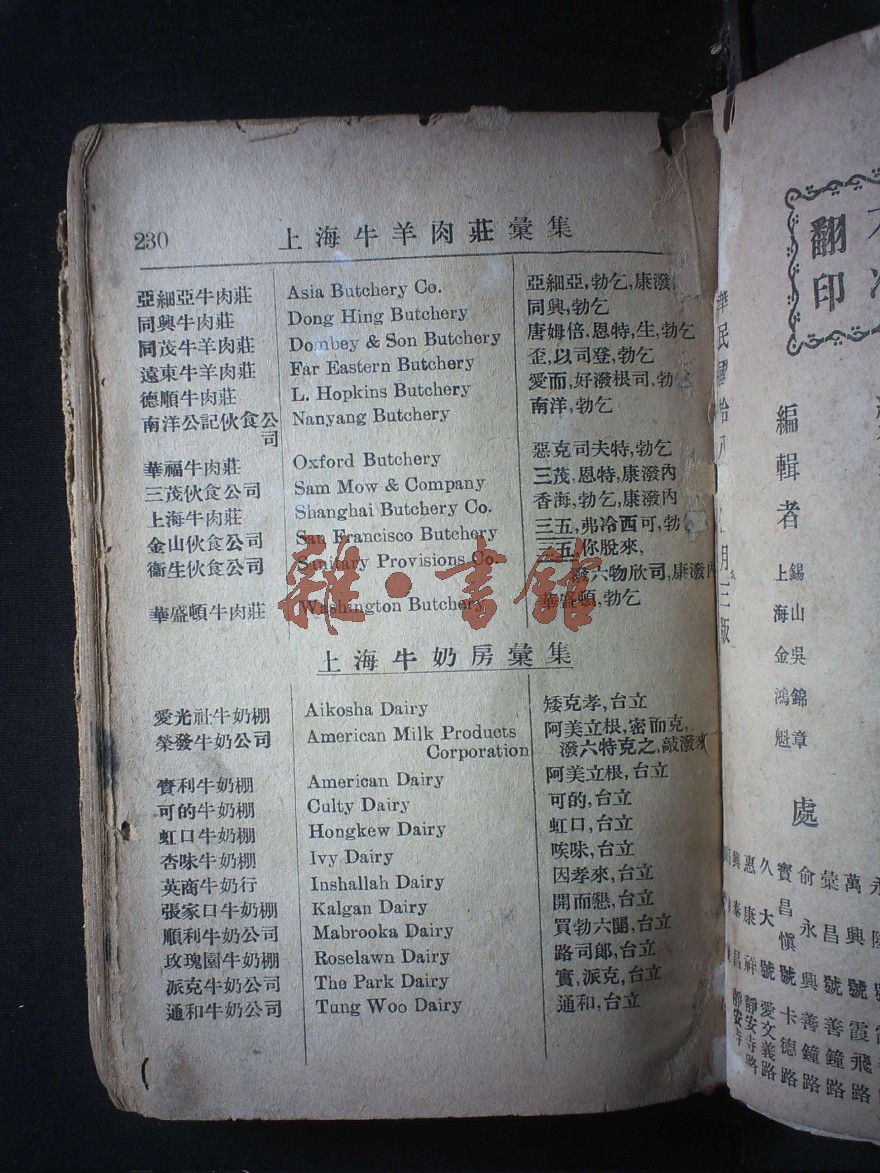 230 上海牛羊肉莊彙集
亞細亞牛肉莊 Asia Butchery Co. 亞細亞,勃乞,康潑
同興牛肉莊 Dong Hing Butchery 同興,勃乞
同茂牛羊肉莊 Dombey & Son Butchery 唐姆倍,恩特,生,勃乞
遠東牛羊肉莊 Far Eastern Butchery 歪,以司登,勃乞
德順牛肉莊 L. Hopkins Butchery 愛而,好潑根司,勃
南洋公記伙食公 Nanyang Butchery 南洋,勃乞
司
華福牛肉莊 Oxford Butchery 惡克司夫特,勃乞
三茂伙食公司 Sam Mow & Company 三茂,恩特,康潑內
上海牛肉莊 Shanghai Butchery Co. 香海,勃乞,康潑內
金山伙食公司 San Francisco Butchery 三五,弗冷西可,勃
衞生伙食公司 Sanitary Provisions Co. 三五,你脫來,
潑六物欣司,康潑內
華盛頓牛肉莊 Washington Butchery 華盛頓,勃乞
雜·書館
上海牛奶房彙集
愛光社牛奶棚 Aikosha Dairy 矮克孝,台立
榮發牛奶公司 American Milk Products 阿美立根,密而克,
Corporation 潑六特克之,敲潑來
實利牛奶棚 American Dairy 阿美立根,台立
可的牛奶棚 Culty Dairy 可的,台立
虹口牛奶棚 Hongkew Dairy 虹口,台立
杏味牛奶棚 Ivy Dairy 唉味,台立
英商牛奶行 Inshallah Dairy 因孝來,台立
張家口牛奶棚 Kalgan Dairy 開而懇,台立
順利牛奶公司 Mabrooka Dairy 買勃六闊,台立
玫瑰園牛奶棚 Roselawn Dairy 路司郎,台立
派克牛奶公司 The Park Dairy 實,派克,台立
通和牛奶公司 Tung Woo Dairy 通和,台立
翻印
華民國拾八
月三版
編輯者
錫山吳錦章
上海金鴻魁
處
萬興號 霞飛路
彙昌號 善鐘路
俞永興 善鐘路
寳昌愼號 卡德路
久大號 愛文義路
惠康祥 靜安寺路
興泰昌 靜安寺